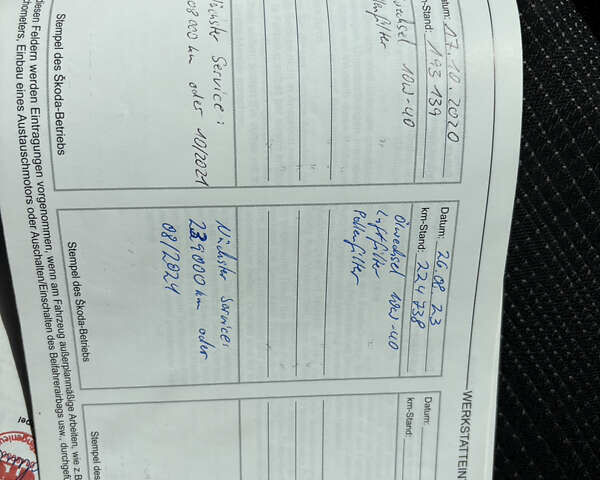 WERKSTATTEIN
Datum: 17.10.2020
km-Stand: 193 139
wechsel 10W-40
llenfilter
ster Service:
08 000 km oder 10/2021
Stempel des Škoda-Betriebs
Datum: 26.08.23
km-Stand: 224738
Ölwechsel 10W-40
Luftfilter
Pollenfilter
Nächster Service:
239000 km oder
08/2024
Stempel des Škoda-Betriebs
Datum:
km-Stand:
Stempel des
diesen Feldern werden Eintragungen vorgenommen, wenn am Fahrzeug außerplanmäßige Arbeiten, wie z.B
chometers, Einbau eines Austauschmotors oder Auschalten/Einschalten des Beifahrerairbags usw., durchgefü